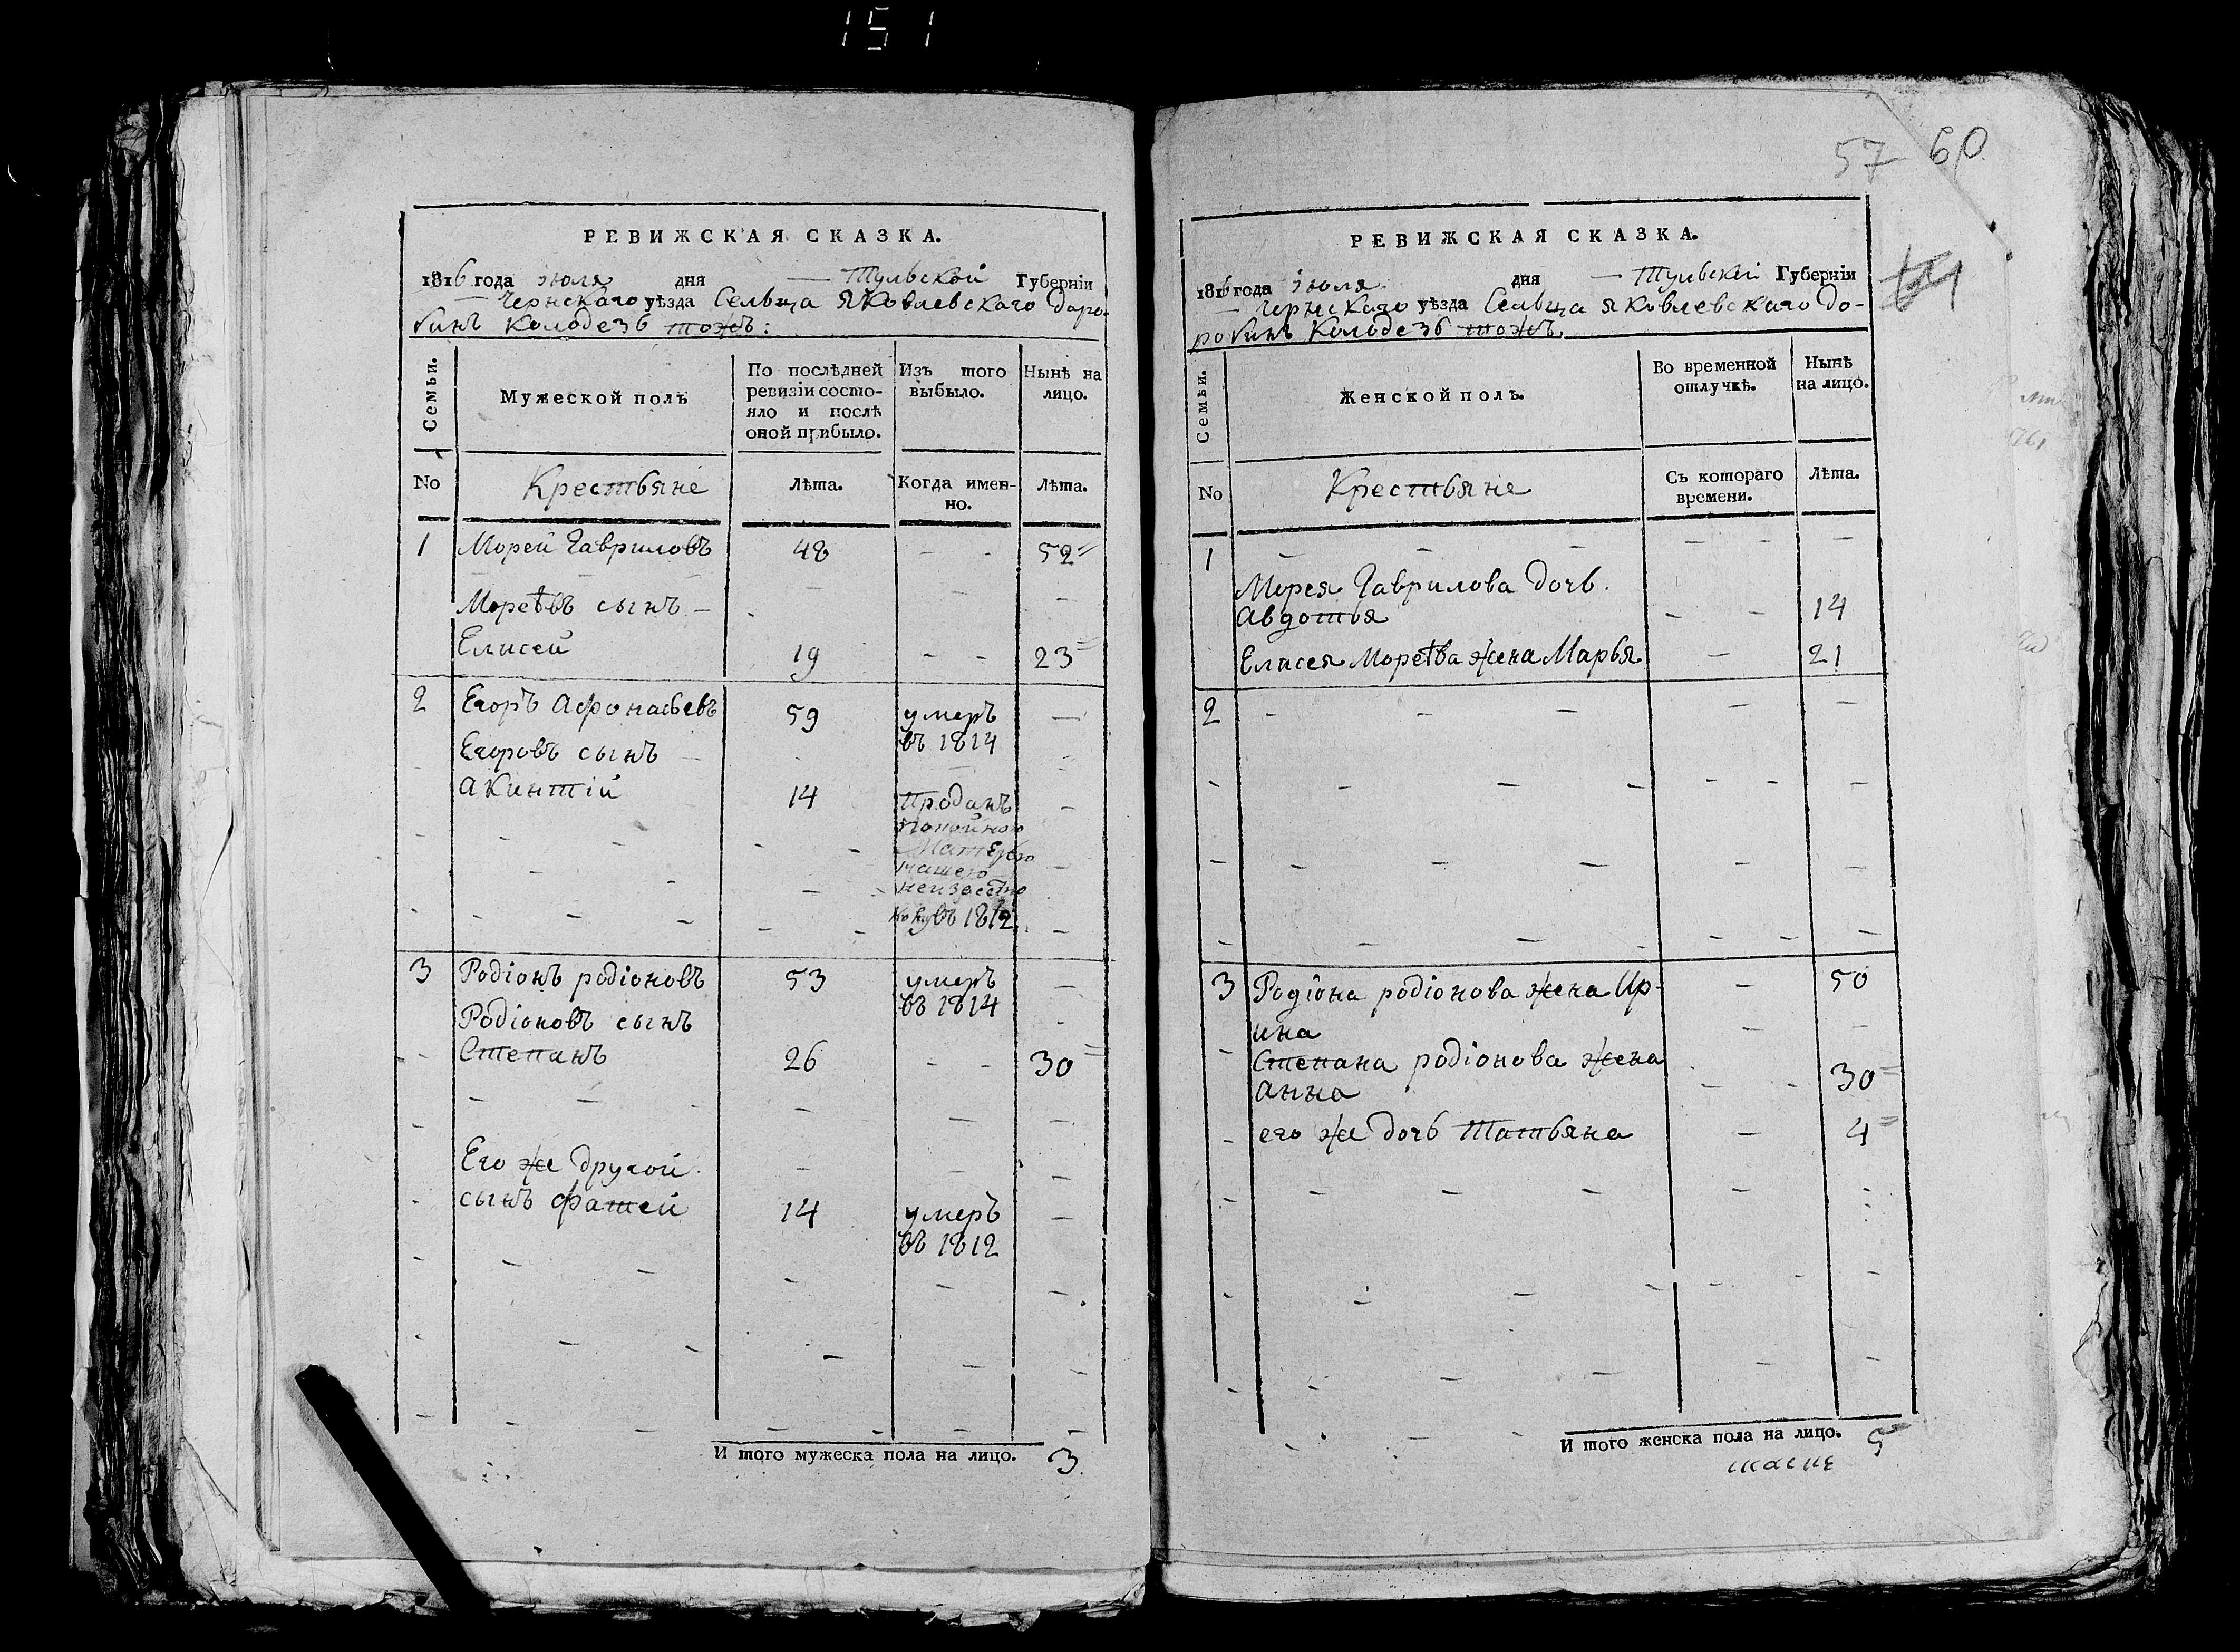 151
РЕВИЖСКАЯ СКАЗКА.
1816 года июля дня — Тульской Губерніи
— Чернскаго уѣзда Сельца Яковлевскаго Даро-
гинъ Колодезь тожъ:
Семьи.
Мужеской полъ
По послѣдней
ревизіи состо-
яло и послѣ
оной прибыло.
Изъ того
выбыло.
Нынѣ на
лицо.
No
Крестьяне
лѣта.
Когда имен-
но.
лѣта.
1 Морей Гавриловъ 48 - - 52
Морѣевъ сынъ -
Елисей 19 - - 23
2 Егоръ Афонасьевъ 59 умеръ —
въ 1814
Егоровъ сынъ
Акинтій 14 Проданъ —
покойною
Матерью
нашею
неизвестно
кому въ 1812
3 Родіонъ родіоновъ 53 умеръ —
въ 1814
Родіоновъ сынъ
Степанъ 26 - - 30
Его же другой
сынъ Фатей 14 умеръ —
въ 1812
И того мужеска пола на лицо. 3
57 60
РЕВИЖСКАЯ СКАЗКА.
1816 года июля дня — Тульской Губерніи
— Чернскаго уѣзда Сельца Яковлевскаго До-
рогинъ Колодезь тожъ.
Семьи.
Женской полъ.
Во временной
отлучкѣ.
Нынѣ
на лицо.
No
Крестьяне
Съ котораго
времени.
лѣта.
1
Морея Гаврилова дочь
Авдотья - - 14
Елисея Морѣева жена Марья — 21
2
3 Родіона родіонова жена Ир- — 50
ина
Степана родіонова жена
Анна - - 30
его же дочь Татьяна — 4
И того женска пола на лицо. 5